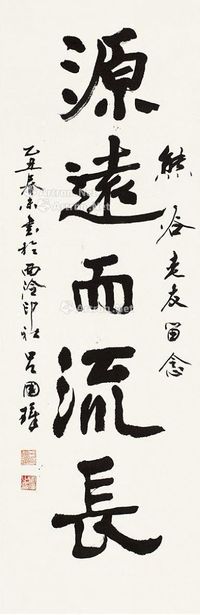 熊谷老友留念
源遠而流長
乙丑春末書於西泠印社呂國璋